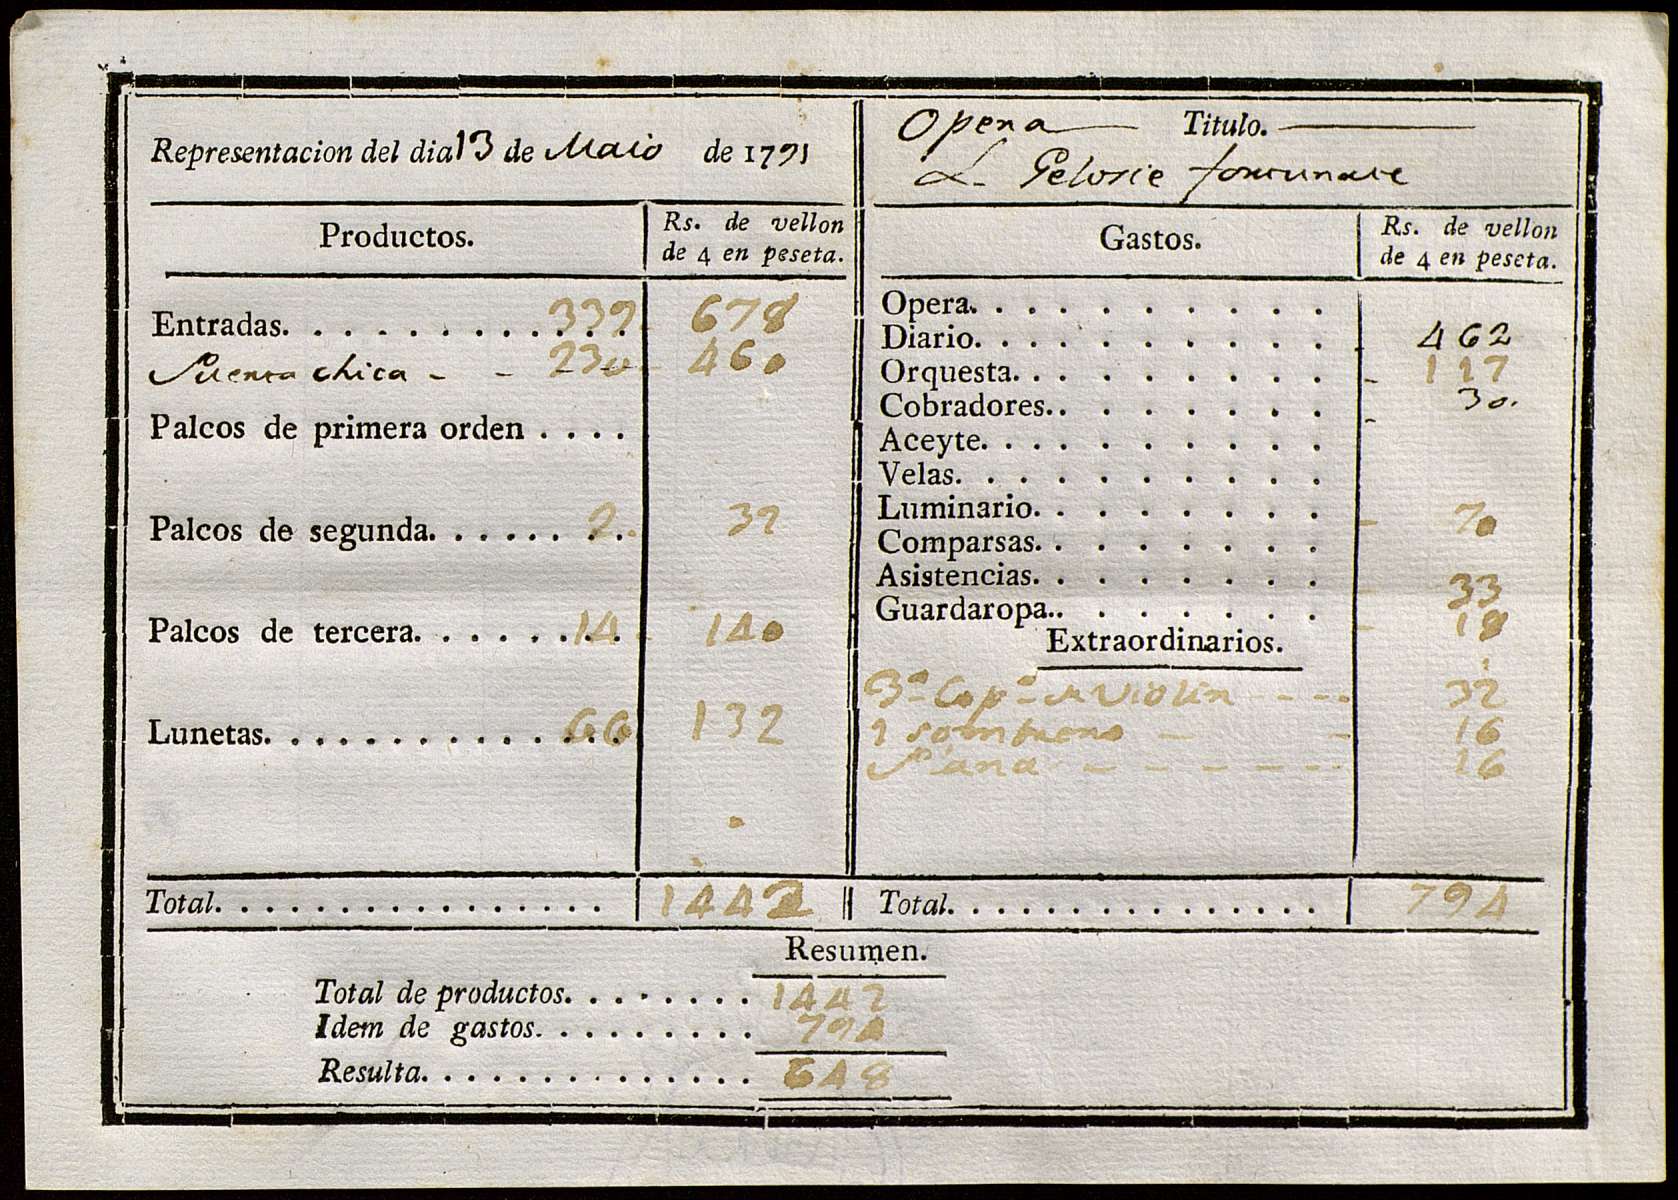 Representacion del dia 13 de Maio de 1791
Opera Titulo.
Le Gelosie fortunate
Productos. Rs. de vellon de 4 en peseta.
Entradas. 339 678
Puerta chica 230 460
Palcos de primera orden
Palcos de segunda. 2 32
Palcos de tercera. 14 140
Lunetas. 66 132
Total. 1442
Gastos. Rs. de vellon de 4 en peseta.
Opera.
Diario. 462
Orquesta. 117
Cobradores. 30.
Aceyte.
Velas.
Luminario. 70
Comparsas.
Asistencias. 33
Guardaropa. 18
Extraordinarios.
3ª Copª de Violin 32
sombrero 16
16
Total. 794
Resumen.
Total de productos. 1442
Idem de gastos. 794
Resulta. 648